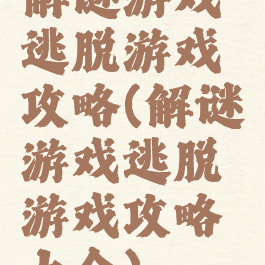 解谜游戏
逃脱游戏
攻略(解谜
游戏逃脱
游戏攻略
大全)